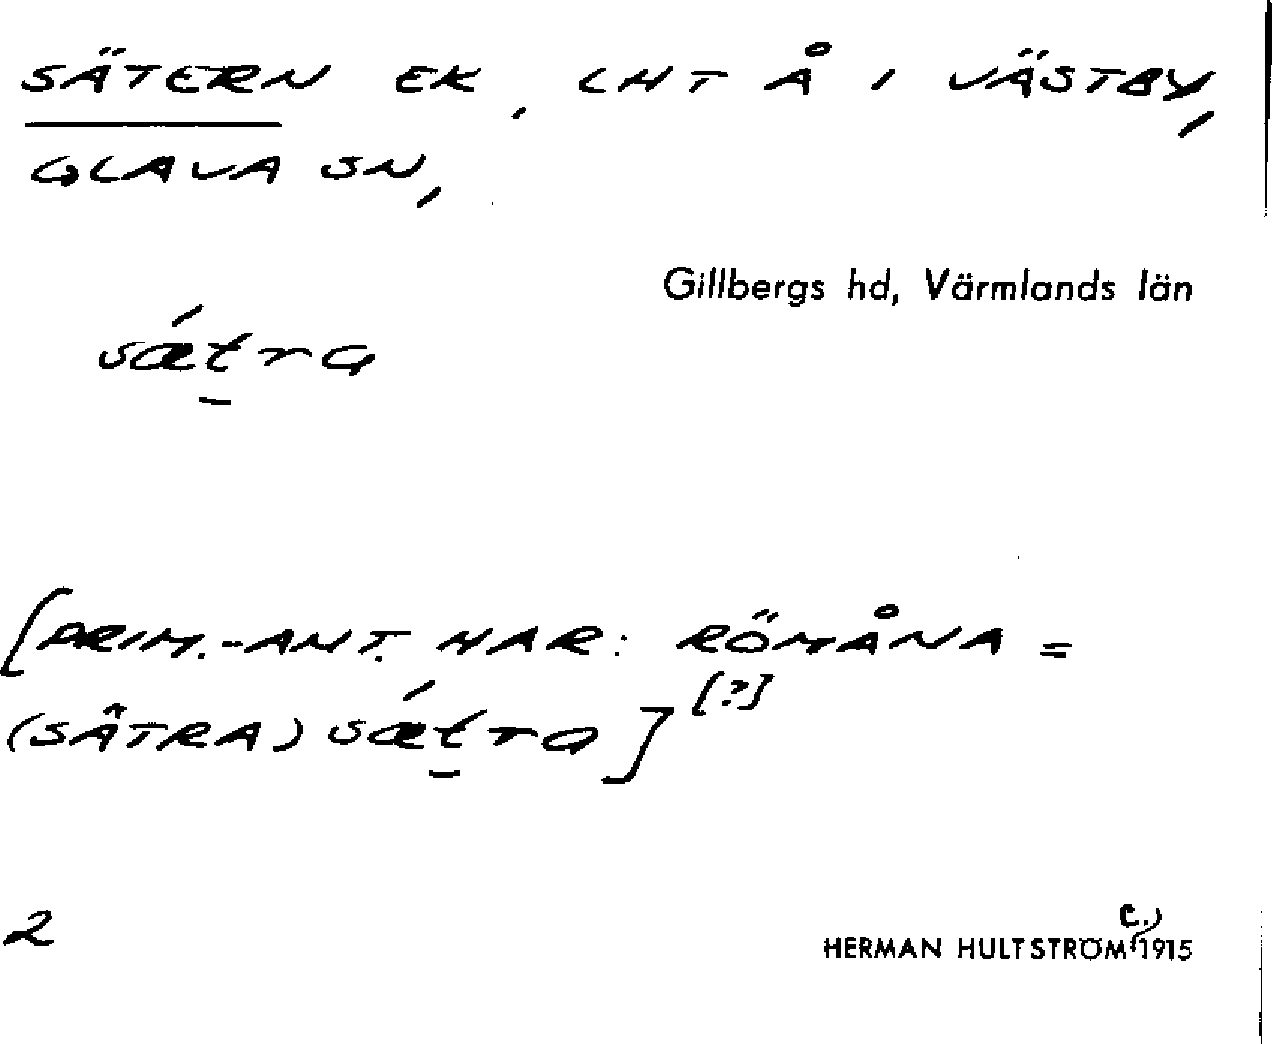 SÄTERN EK, LHT Å I VÄSTBY,
GLAVA SN,
Gillbergs hd, Värmlands län
sǽtra
[PRIM.-ANT. HAR: RÖMÅNA =
(SÂTRA) sǽtra] [?]
2
C.)
HERMAN HULTSTRÖM 1915